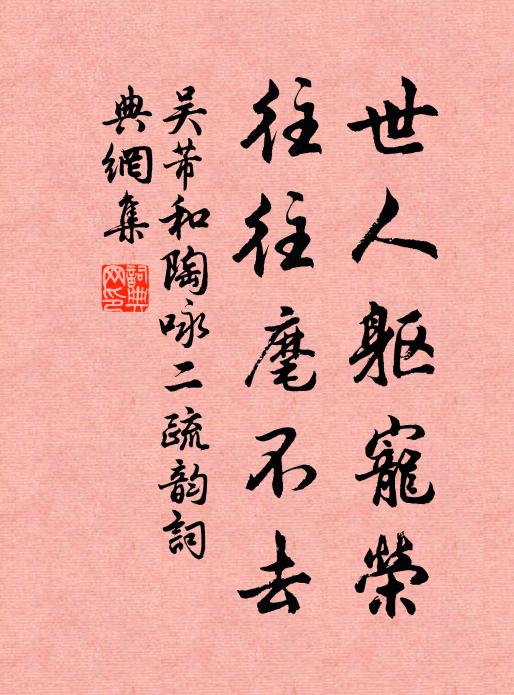 世人躯寵榮
往往麾不去
吴芾和陶咏二疏韵詞
典網集
詞典
网印